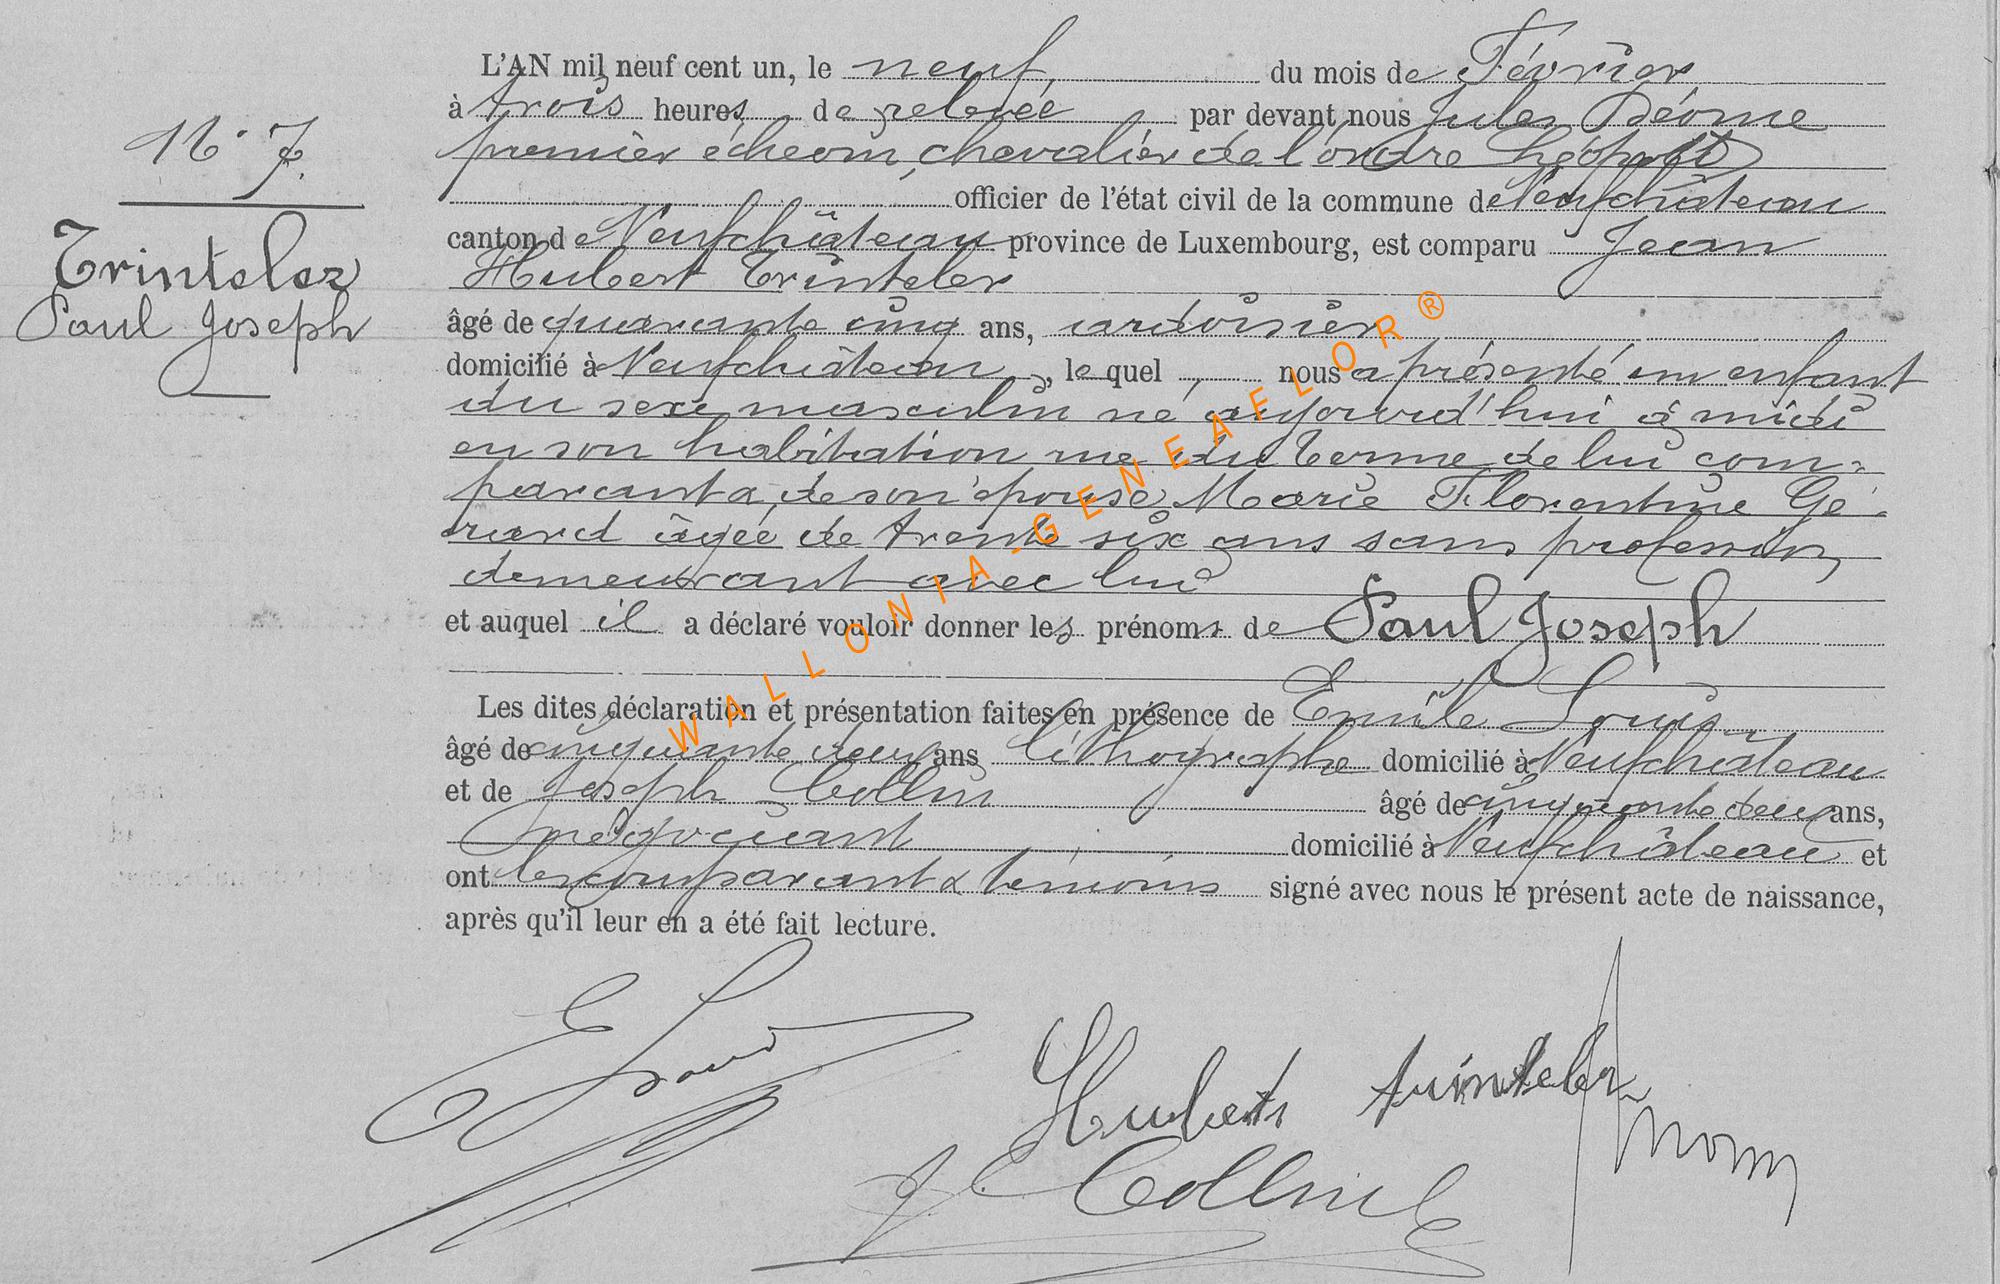 N° 7.
Trinteler
Paul Joseph
L'AN mil neuf cent un, le neuf, du mois de Février
à trois heures de relevée par devant nous Jules
premier échevin, chevalier de l'ordre Léopold
officier de l'état civil de la commune de Neufchâteau
canton de Neufchâteau province de Luxembourg, est comparu Jean
Hubert Trinteler
âgé de quarante cinq ans, ardoisier
domicilié à Neufchâteau, le quel, nous a présenté un enfant
du sexe masculin né aujourd'hui à midi
en son habitation rue du Terme de lui com-
parant & de son épouse Marie Florentine Gé-
rard âgée de trente six ans sans profession,
demeurant avec lui
et auquel il a déclaré vouloir donner les prénoms de Paul Joseph
Les dites déclaration et présentation faites en présence de Emile Louis,
âgé de cinquante deux ans lithographe domicilié à Neufchâteau
et de Joseph Collin âgé de cinquante deux ans,
négociant domicilié à Neufchâteau et
ont les comparant & témoins signé avec nous le présent acte de naissance,
après qu'il leur en a été fait lecture.
E Louis
Hubert trinteler
J. Collin
WALLONIA-GENEAFLOR®